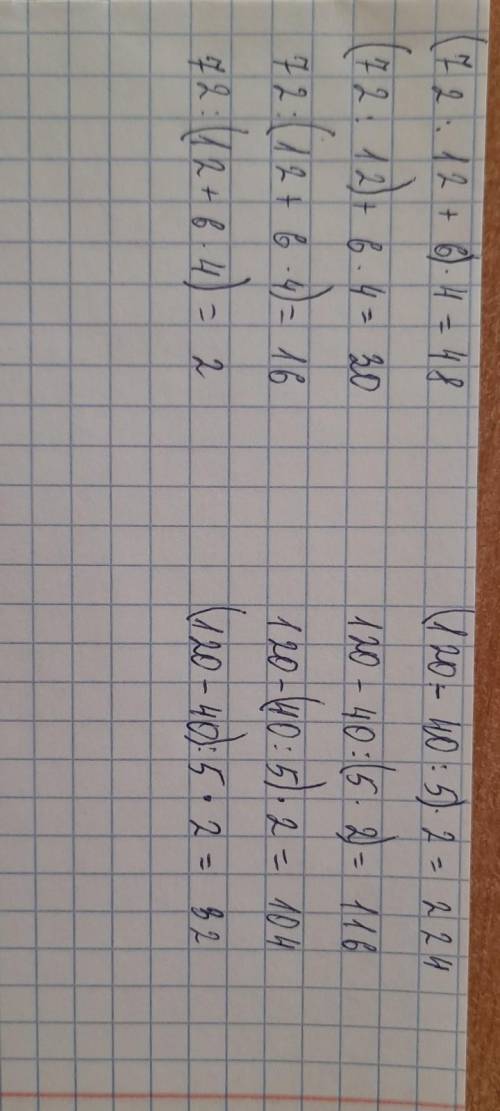 (72 : 12 + 6) · 4 = 48
(72 : 12) + 6 · 4 = 30
72 : (12 + 6 · 4) = 16
72 : (12 + 6 · 4) = 2
(120 - 40 : 5) · 2 = 224
120 - 40 : (5 · 2) = 116
120 - (40 : 5) · 2 = 104
(120 - 40) : 5 · 2 = 32